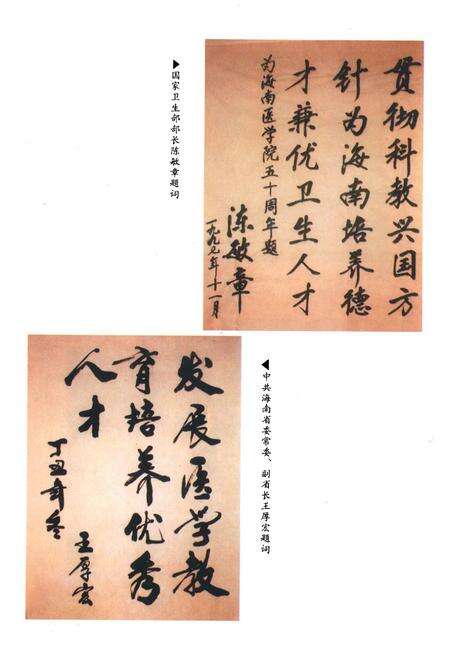 贯彻科教兴国方
针为海南培养德
才兼优卫生人才
为海南医学院五十周年题
陈敏章
一九九七年十一月
▶国家卫生部部长陈敏章题词
发展医学教
育培养优秀
人才
丁丑年冬
王厚宏
◀中共海南省委常委、副省长王厚宏题词